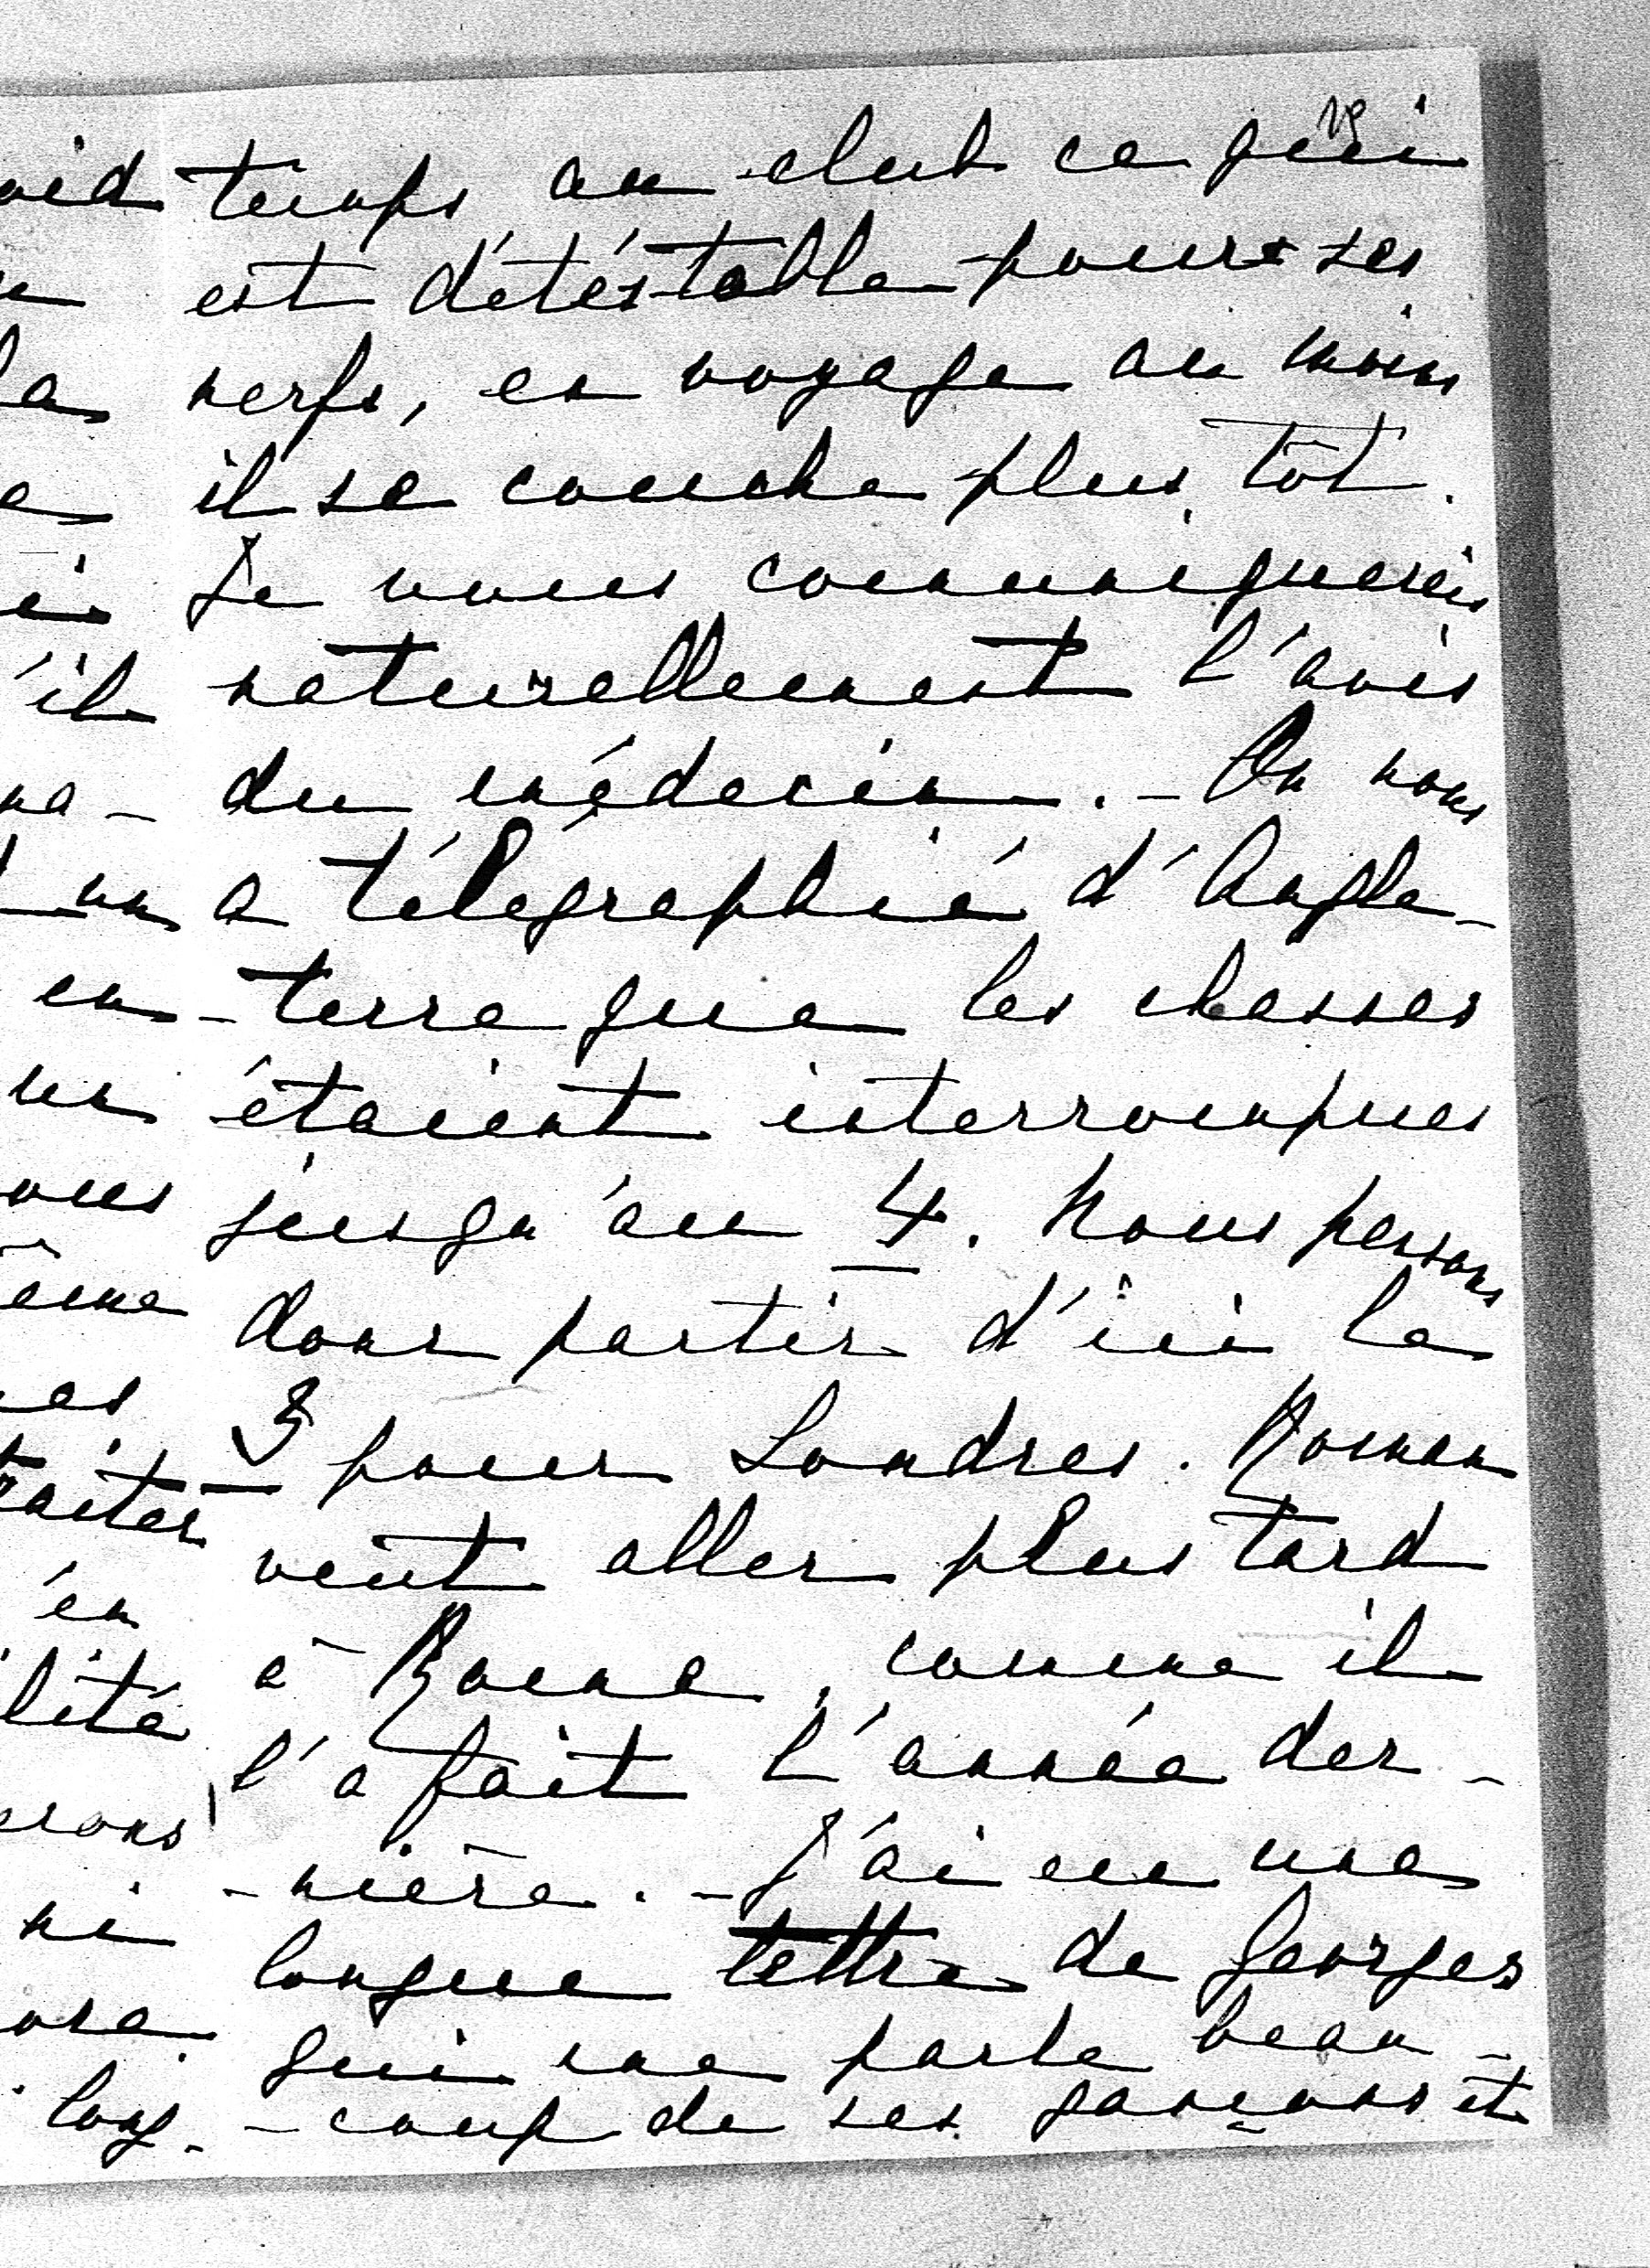 temps au club ce qui
est détéstable pour ses
nerfs, en voyage au moins
il se couche plus tôt.
Je vous communiquerais
naturellement l'avis
du médecin. - On nous
a télégraphié d'Angle-
-terre que les chasses
étaient interrompues
jusqu'au 4. Nous pensons
donc partir d'ici le
3 pour Londres. Roman
veut aller plus tard
à Rome, comme il
l'a fait l'année der-
-nière. - J'ai eu une
longue lettre de Georges
qui me parle beau-
-coup de ses garçons et